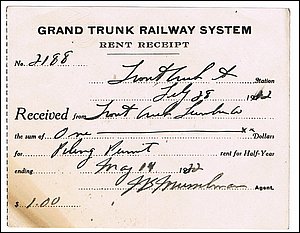 GRAND TRUNK RAILWAY SYSTEM
RENT RECEIPT
No. 2188
Trout Creek Station
Feby 28 1922
Received from Trout Creek Lumber Co
the sum of One Dollars
for Piling Permit rent for Half-Year
ending May 14 1922
Agent.
$ 1.00